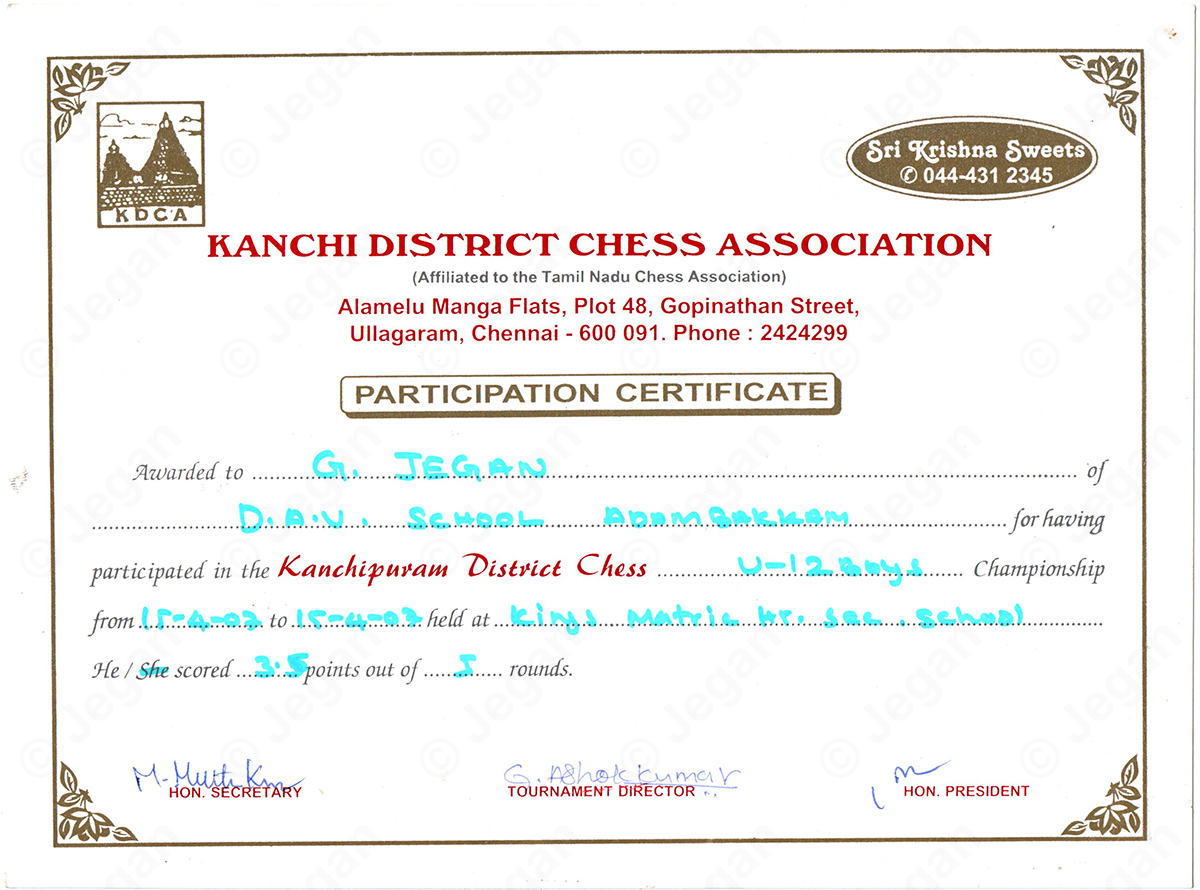 KDCA
Sri Krishna Sweets
✆ 044-431 2345
KANCHI DISTRICT CHESS ASSOCIATION
(Affiliated to the Tamil Nadu Chess Association)
Alamelu Manga Flats, Plot 48, Gopinathan Street,
Ullagaram, Chennai - 600 091. Phone : 2424299
PARTICIPATION CERTIFICATE
Awarded to G. JEGAN of
D.A.V. SCHOOL ADAMBAKKAM for having
participated in the Kanchipuram District Chess U-12 Boys Championship
from 15-4-03 to 15-4-03 held at Kings Matric Hr. Sec. School
He / She scored 3.5 points out of 5 rounds.
G. Ashokkumar
HON. SECRETARY TOURNAMENT DIRECTOR HON. PRESIDENT
© Jegan